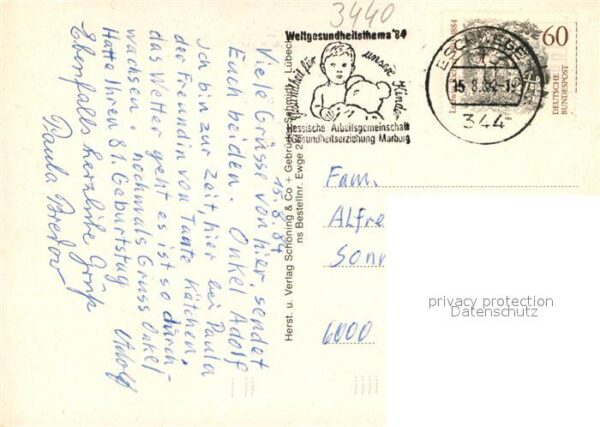 3440
Weltgesundheitsthema '84
Gesundheit für unsere Kinder
Hessische Arbeitsgemeinschaft
Gesundheitserziehung Marburg
ESCHWEGE
15.8.84-1
344
60
DEUTSCHE
BUNDESPOST
15.8.84
Viele Grüsse von hier sendet
Euch beiden. Onkel Adolf
ich bin zur Zeit, hier bei Paula
der Freundin von Tante Kätchen.
das Wetter geht es ist so durch-
wachsen. nochmals Gruss Onkel
Adolf
Hatte Ihren 81. Geburtstag
Ebenfalls herzliche Grüße
Paula Bredow
Herst. u. Verlag Schöning & Co + Gebrüder Schmidt, Lübeck
ns Bestellnr. Ewge 2
Fam.
Alfre
Sonn
6000
privacy protection
Datenschutz